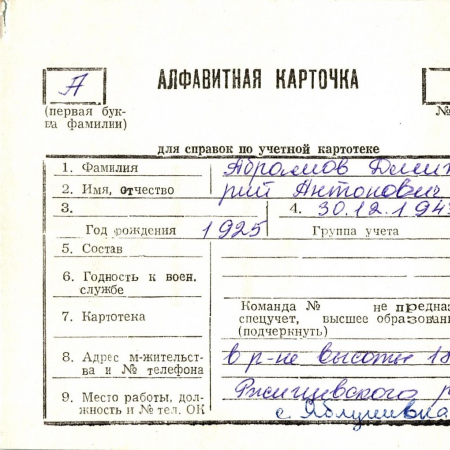 А
АЛФАВИТНАЯ КАРТОЧКА
(первая бук-
ва фамилии)
№
для справок по учетной картотеке
1. Фамилия Абрамов Дмит
2. Имя, отчество рий Антонович
3. 4. 30.12.194
Год рождения 1925 Группа учета
5. Состав
6. Годность к воен.
службе
7. Картотека
Команда № не предназ
спецучет, высшее образовани
(подчеркнуть)
8. Адрес м-жительст-
ва и № телефона
в р-не высоты 18
9. Место работы, дол-
жность и № тел. ОК
Ржищевского р
с. Яблуневка